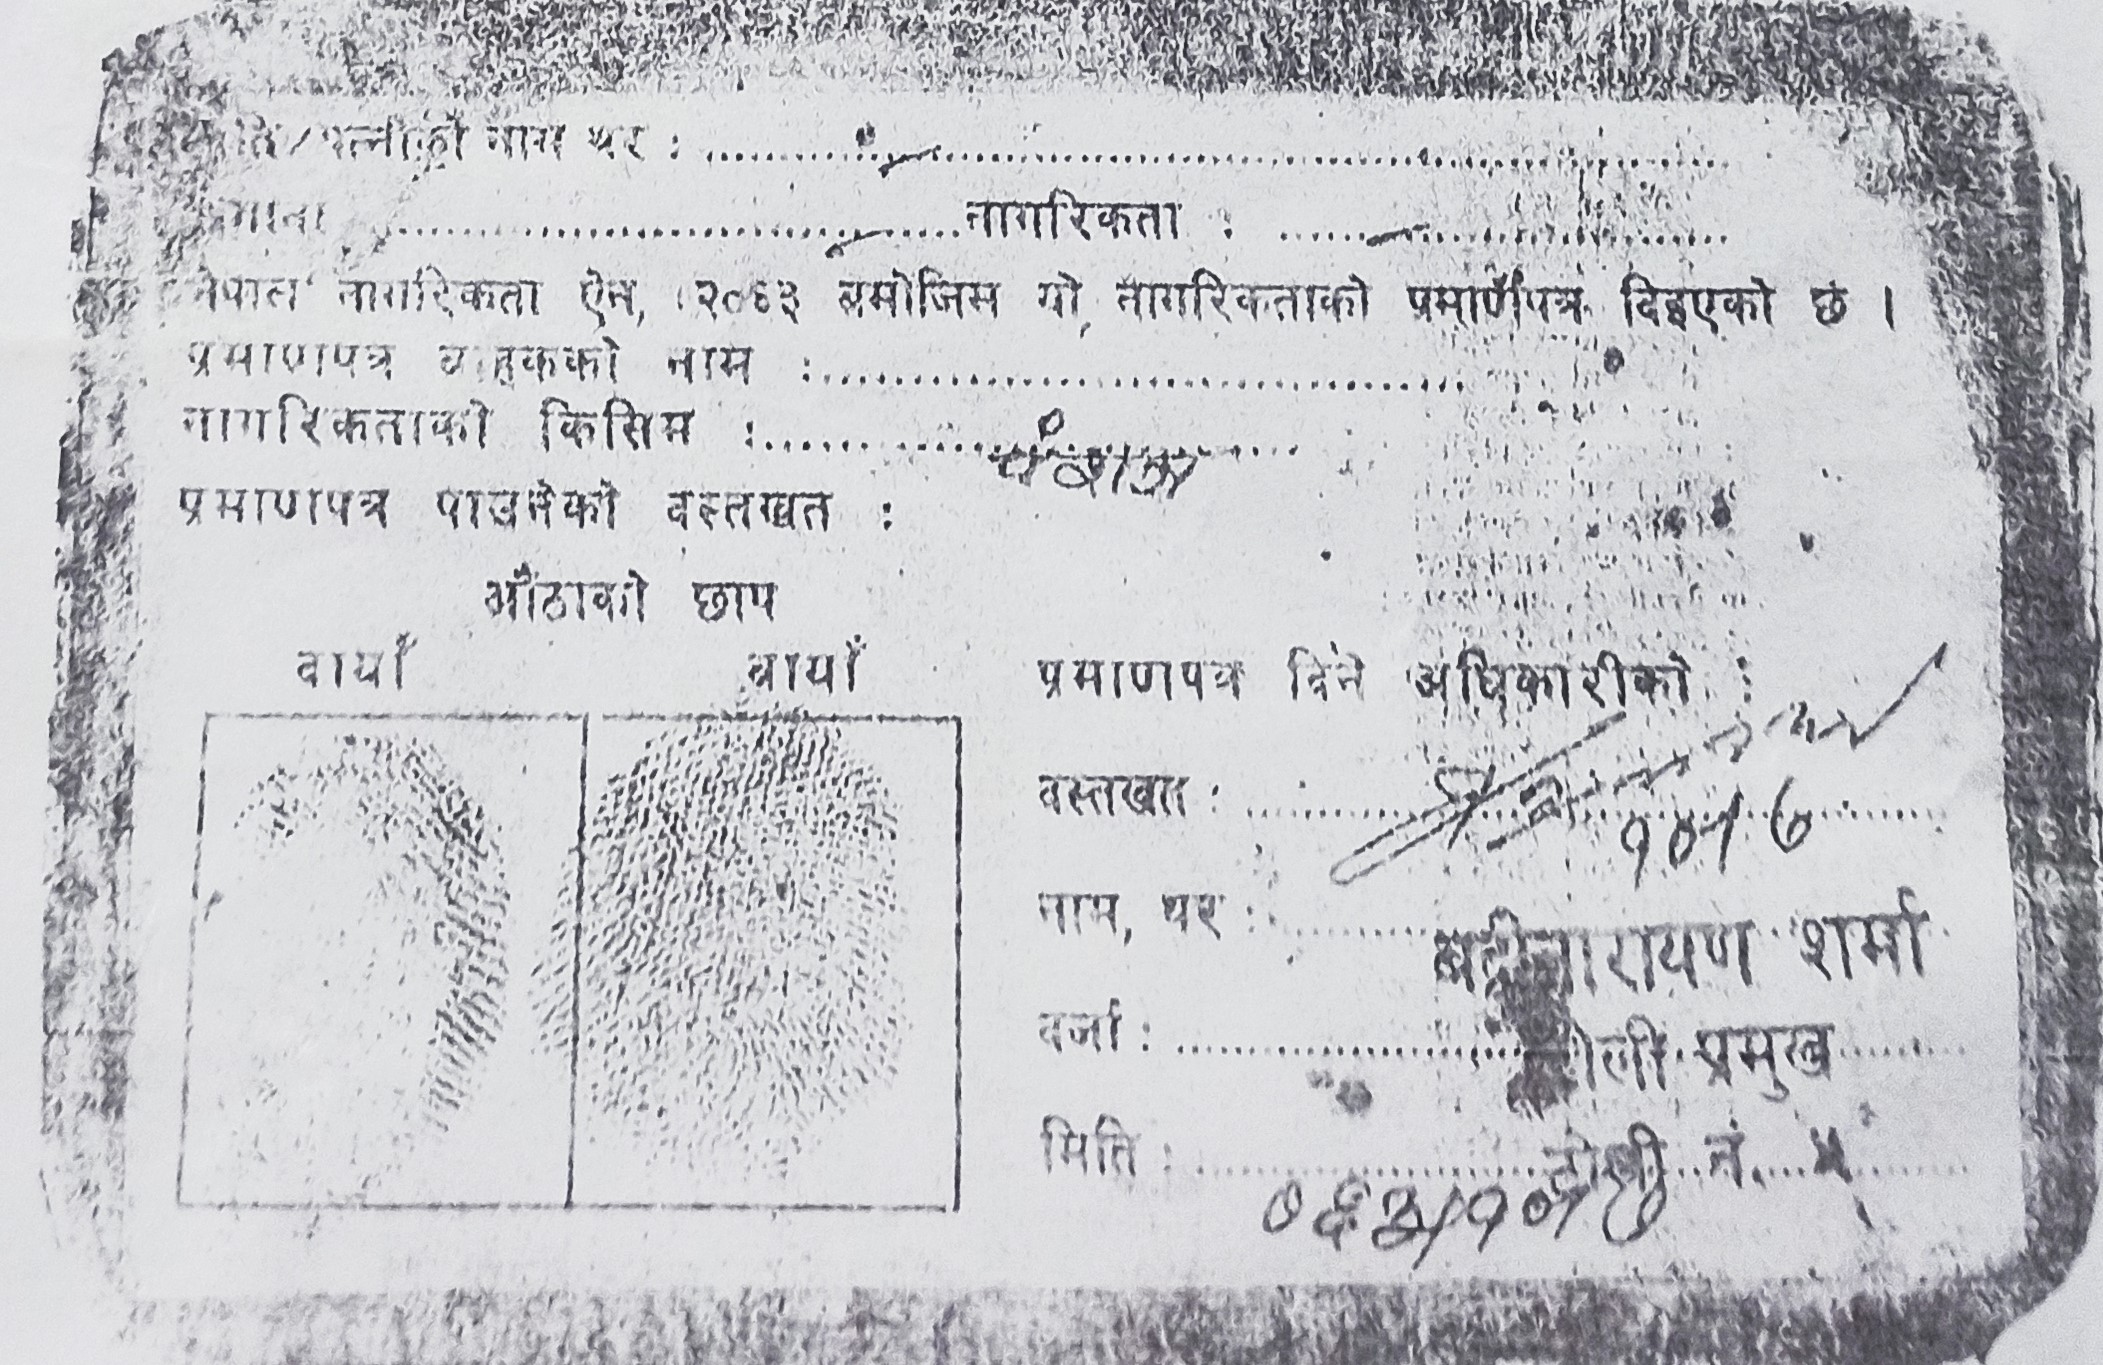 पति/पत्नीको नाम थर :
ठेगाना नागरिकता :
नेपाल नागरिकता ऐन, २०६३ बमोजिम यो नागरिकताको प्रमाणपत्र दिइएको छ ।
प्रमाणपत्र बाहकको नाम :
नागरिकताको किसिम : वंशज
प्रमाणपत्र पाउनेको दस्तखत :
औंठाको छाप
दायाँ बायाँ
प्रमाणपत्र दिने अधिकारीको :
दस्तखत :
नाम, थर : बद्रीनारायण शर्मा
दर्जा : टोली प्रमुख
टोली नं. ५
मिति : ०६३/१०/७